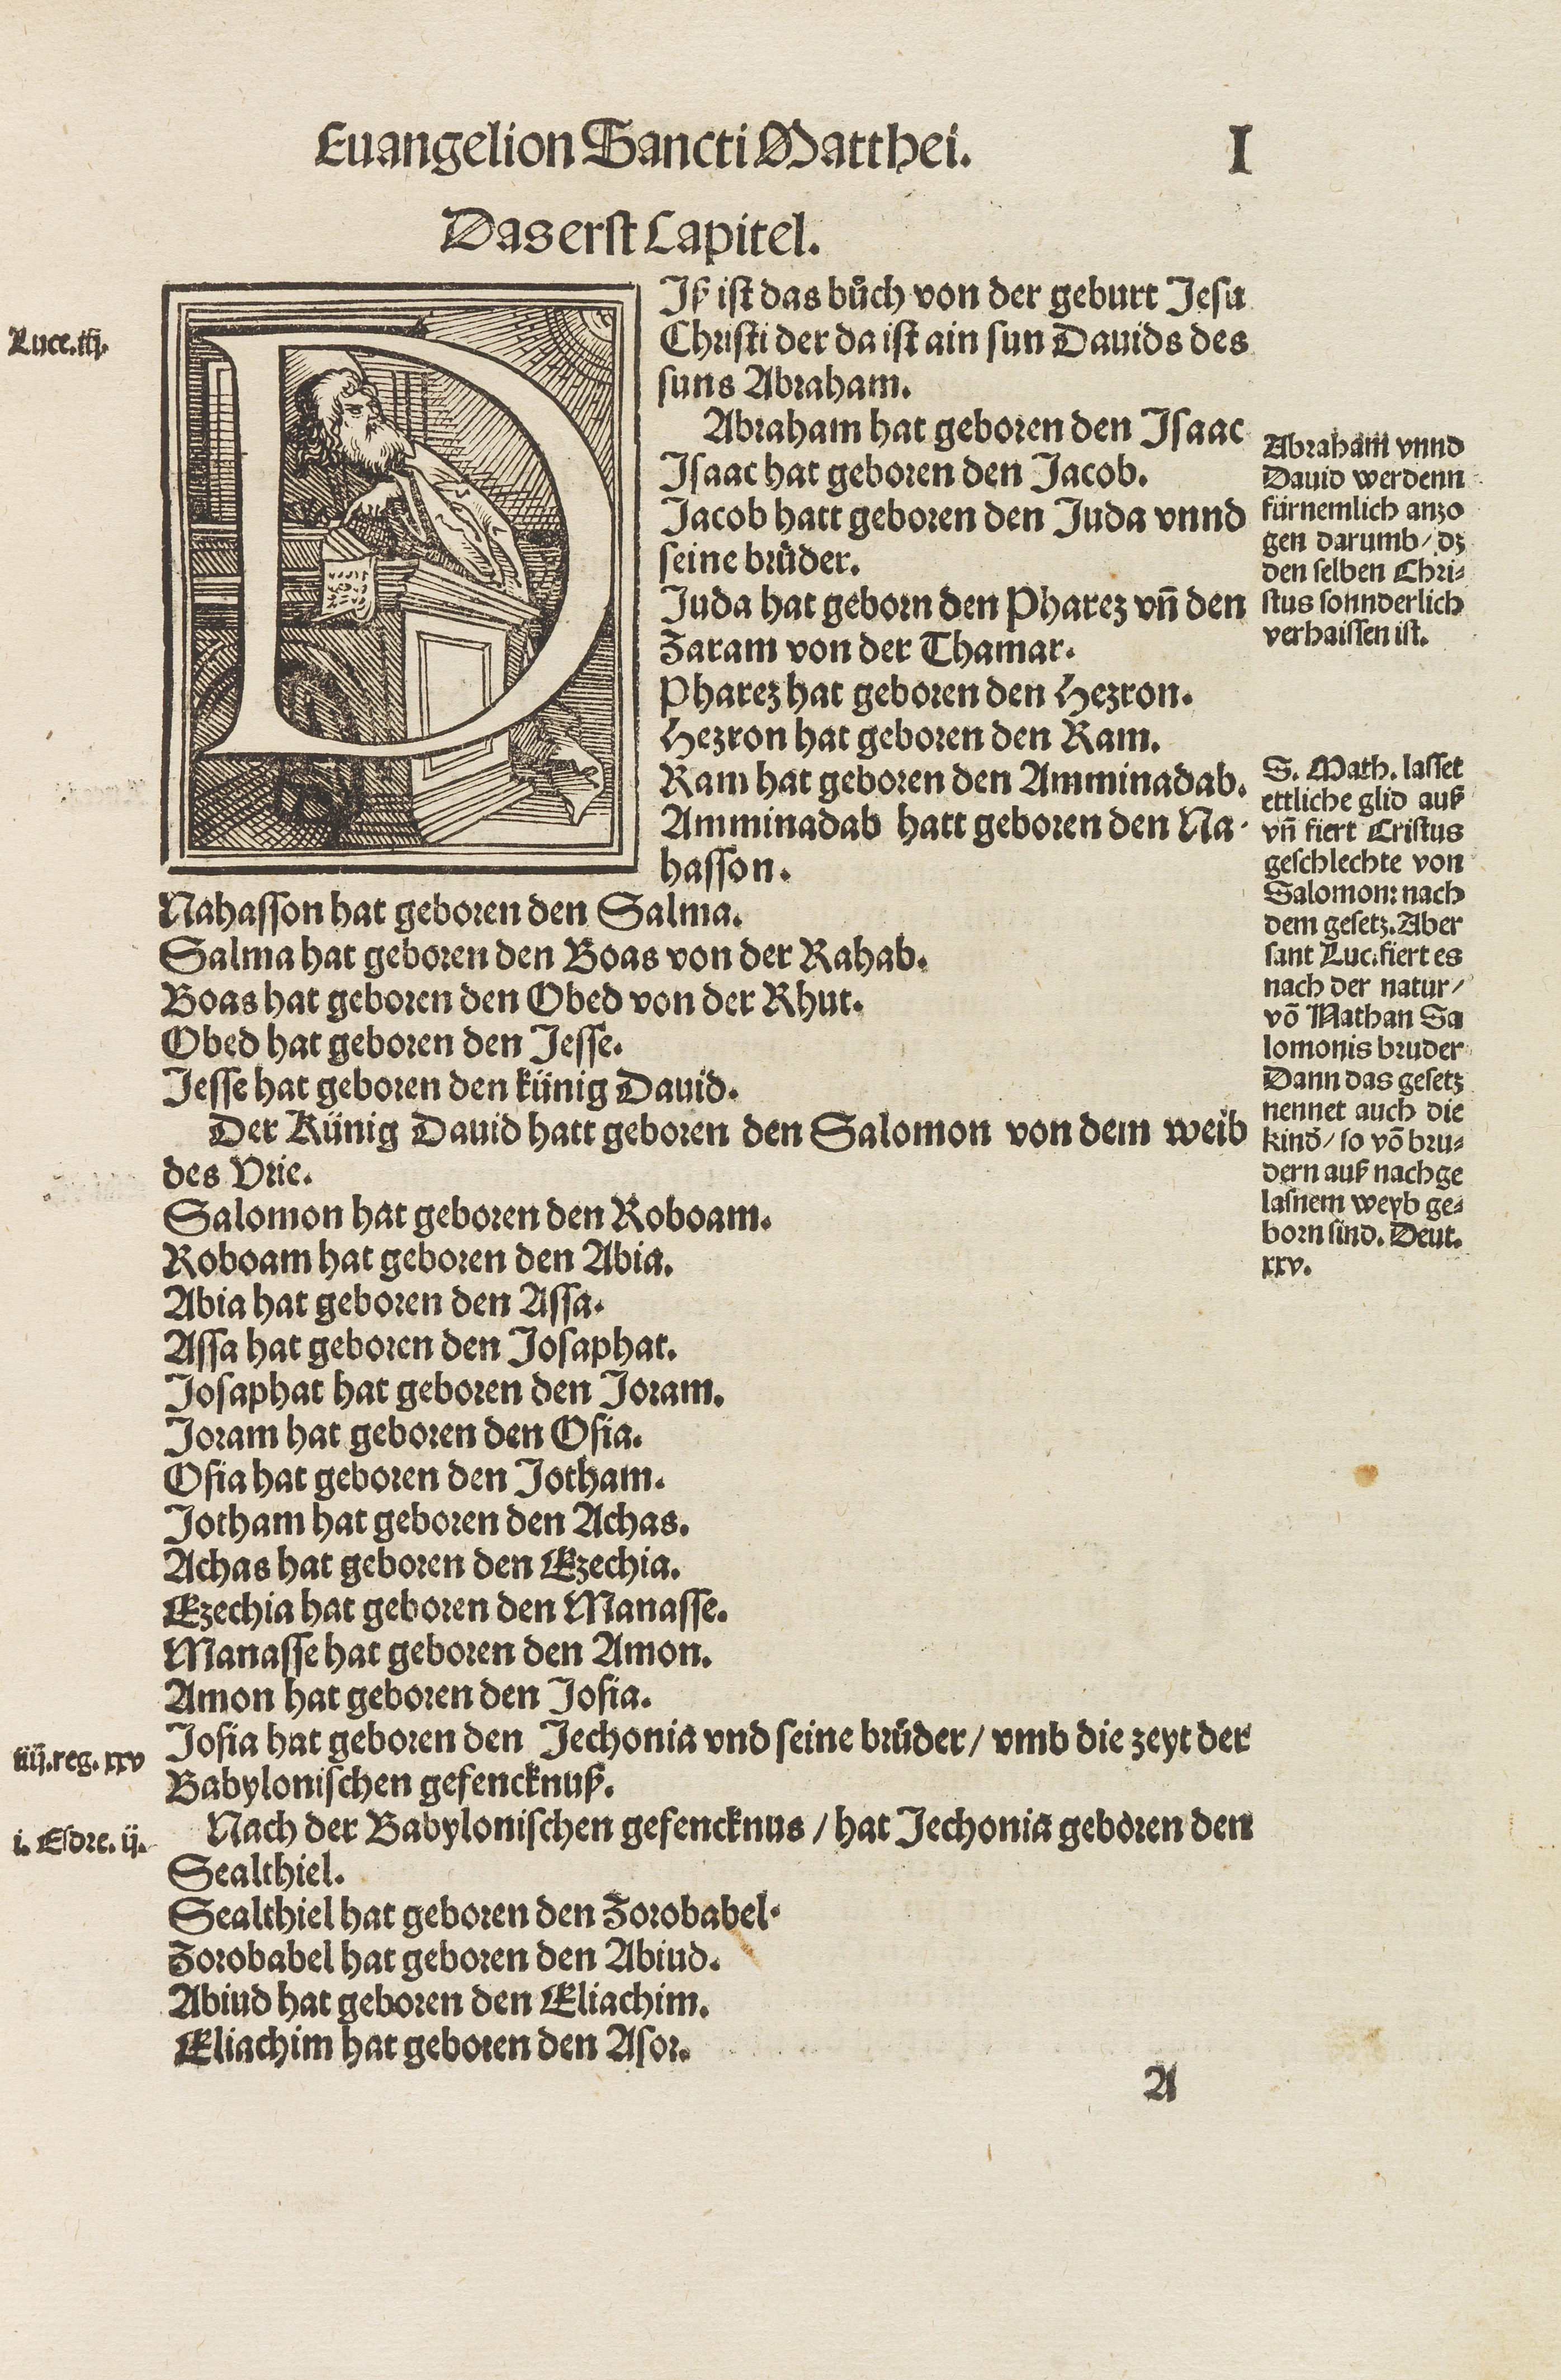 Euangelion Sancti Matthei. I
Das erst Capitel.
DIß ist das bůch von der geburt Jesu
Christi der da ist ain sun Dauids des
suns Abraham.
Abraham hat geboren den Isaac
Isaac hat geboren den Jacob.
Jacob hatt geboren den Juda vnnd
seine brůder.
Juda hat geborn den Pharez vñ den
Zaram von der Thamar.
Pharez hat geboren den Hezron.
Hezron hat geboren den Ram.
Ram hat geboren den Amminadab.
Amminadab hatt geboren den Na-
hasson.
Nahasson hat geboren den Salma.
Salma hat geboren den Boas von der Rahab.
Boas hat geboren den Obed von der Rhut.
Obed hat geboren den Jesse.
Jesse hat geboren den künig Dauid.
Der Künig Dauid hatt geboren den Salomon von dem weib
des Vrie.
Salomon hat geboren den Roboam.
Roboam hat geboren den Abia.
Abia hat geboren den Assa.
Assa hat geboren den Josaphat.
Josaphat hat geboren den Joram.
Joram hat geboren den Osia.
Osia hat geboren den Jotham.
Jotham hat geboren den Achas.
Achas hat geboren den Ezechia.
Ezechia hat geboren den Manasse.
Manasse hat geboren den Amon.
Amon hat geboren den Josia.
Josia hat geboren den Jechonia vnd seine brůder / vmb die zeyt der
Babylonischen gefencknuß.
Nach der Babylonischen gefencknus / hat Jechonia geboren den
Sealthiel.
Sealthiel hat geboren den Zorobabel.
Zorobabel hat geboren den Abiud.
Abiud hat geboren den Eliachim.
Eliachim hat geboren den Asor.
A
Luce. iij.
iiij. reg. xxv
i. Esdre. ij.
Abraham vnnd
Dauid werdenn
fürnemlich anzo
gen darumb / dz
den selben Chri-
stus sonnderlich
verhaissen ist.
S. Math. lasset
ettliche glid auß
vñ fiert Cristus
geschlechte von
Salomon: nach
dem gesetz. Aber
sant Luc. fiert es
nach der natur /
võ Nathan Sa
lomonis bruder
Dann das gesetz
nennet auch die
kind / so võ bru-
dern auß nachge
lasnem weyb ge-
born sind. Deut.
xxv.